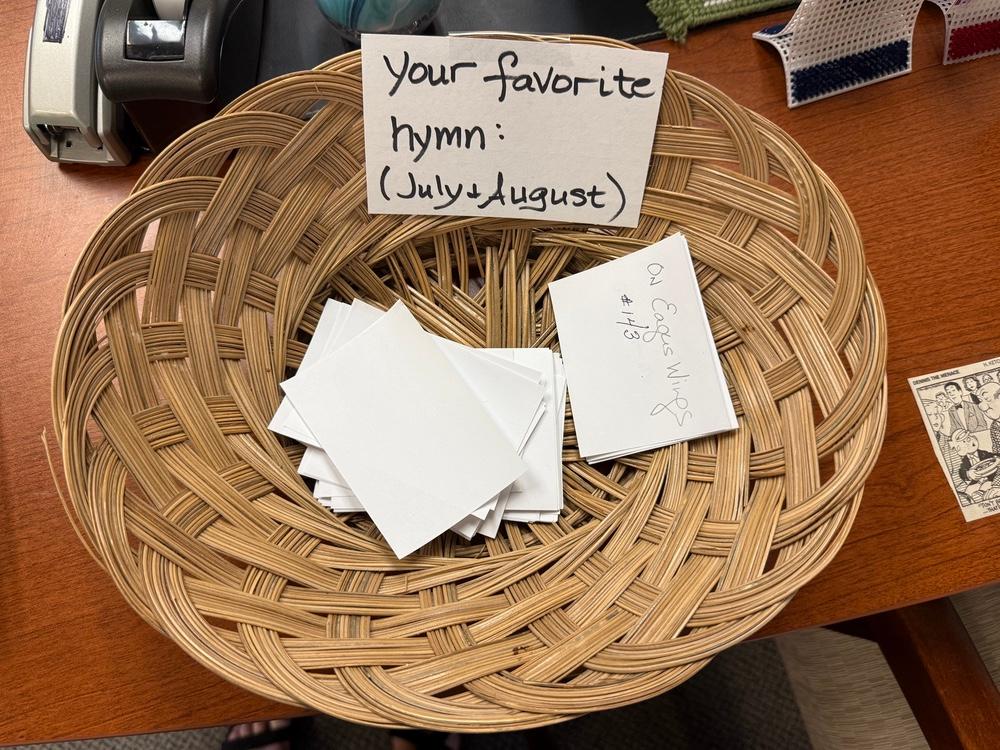 Your favorite
hymn:
(July + August)
On Eagles Wings
#143
DENNIS THE MENACE